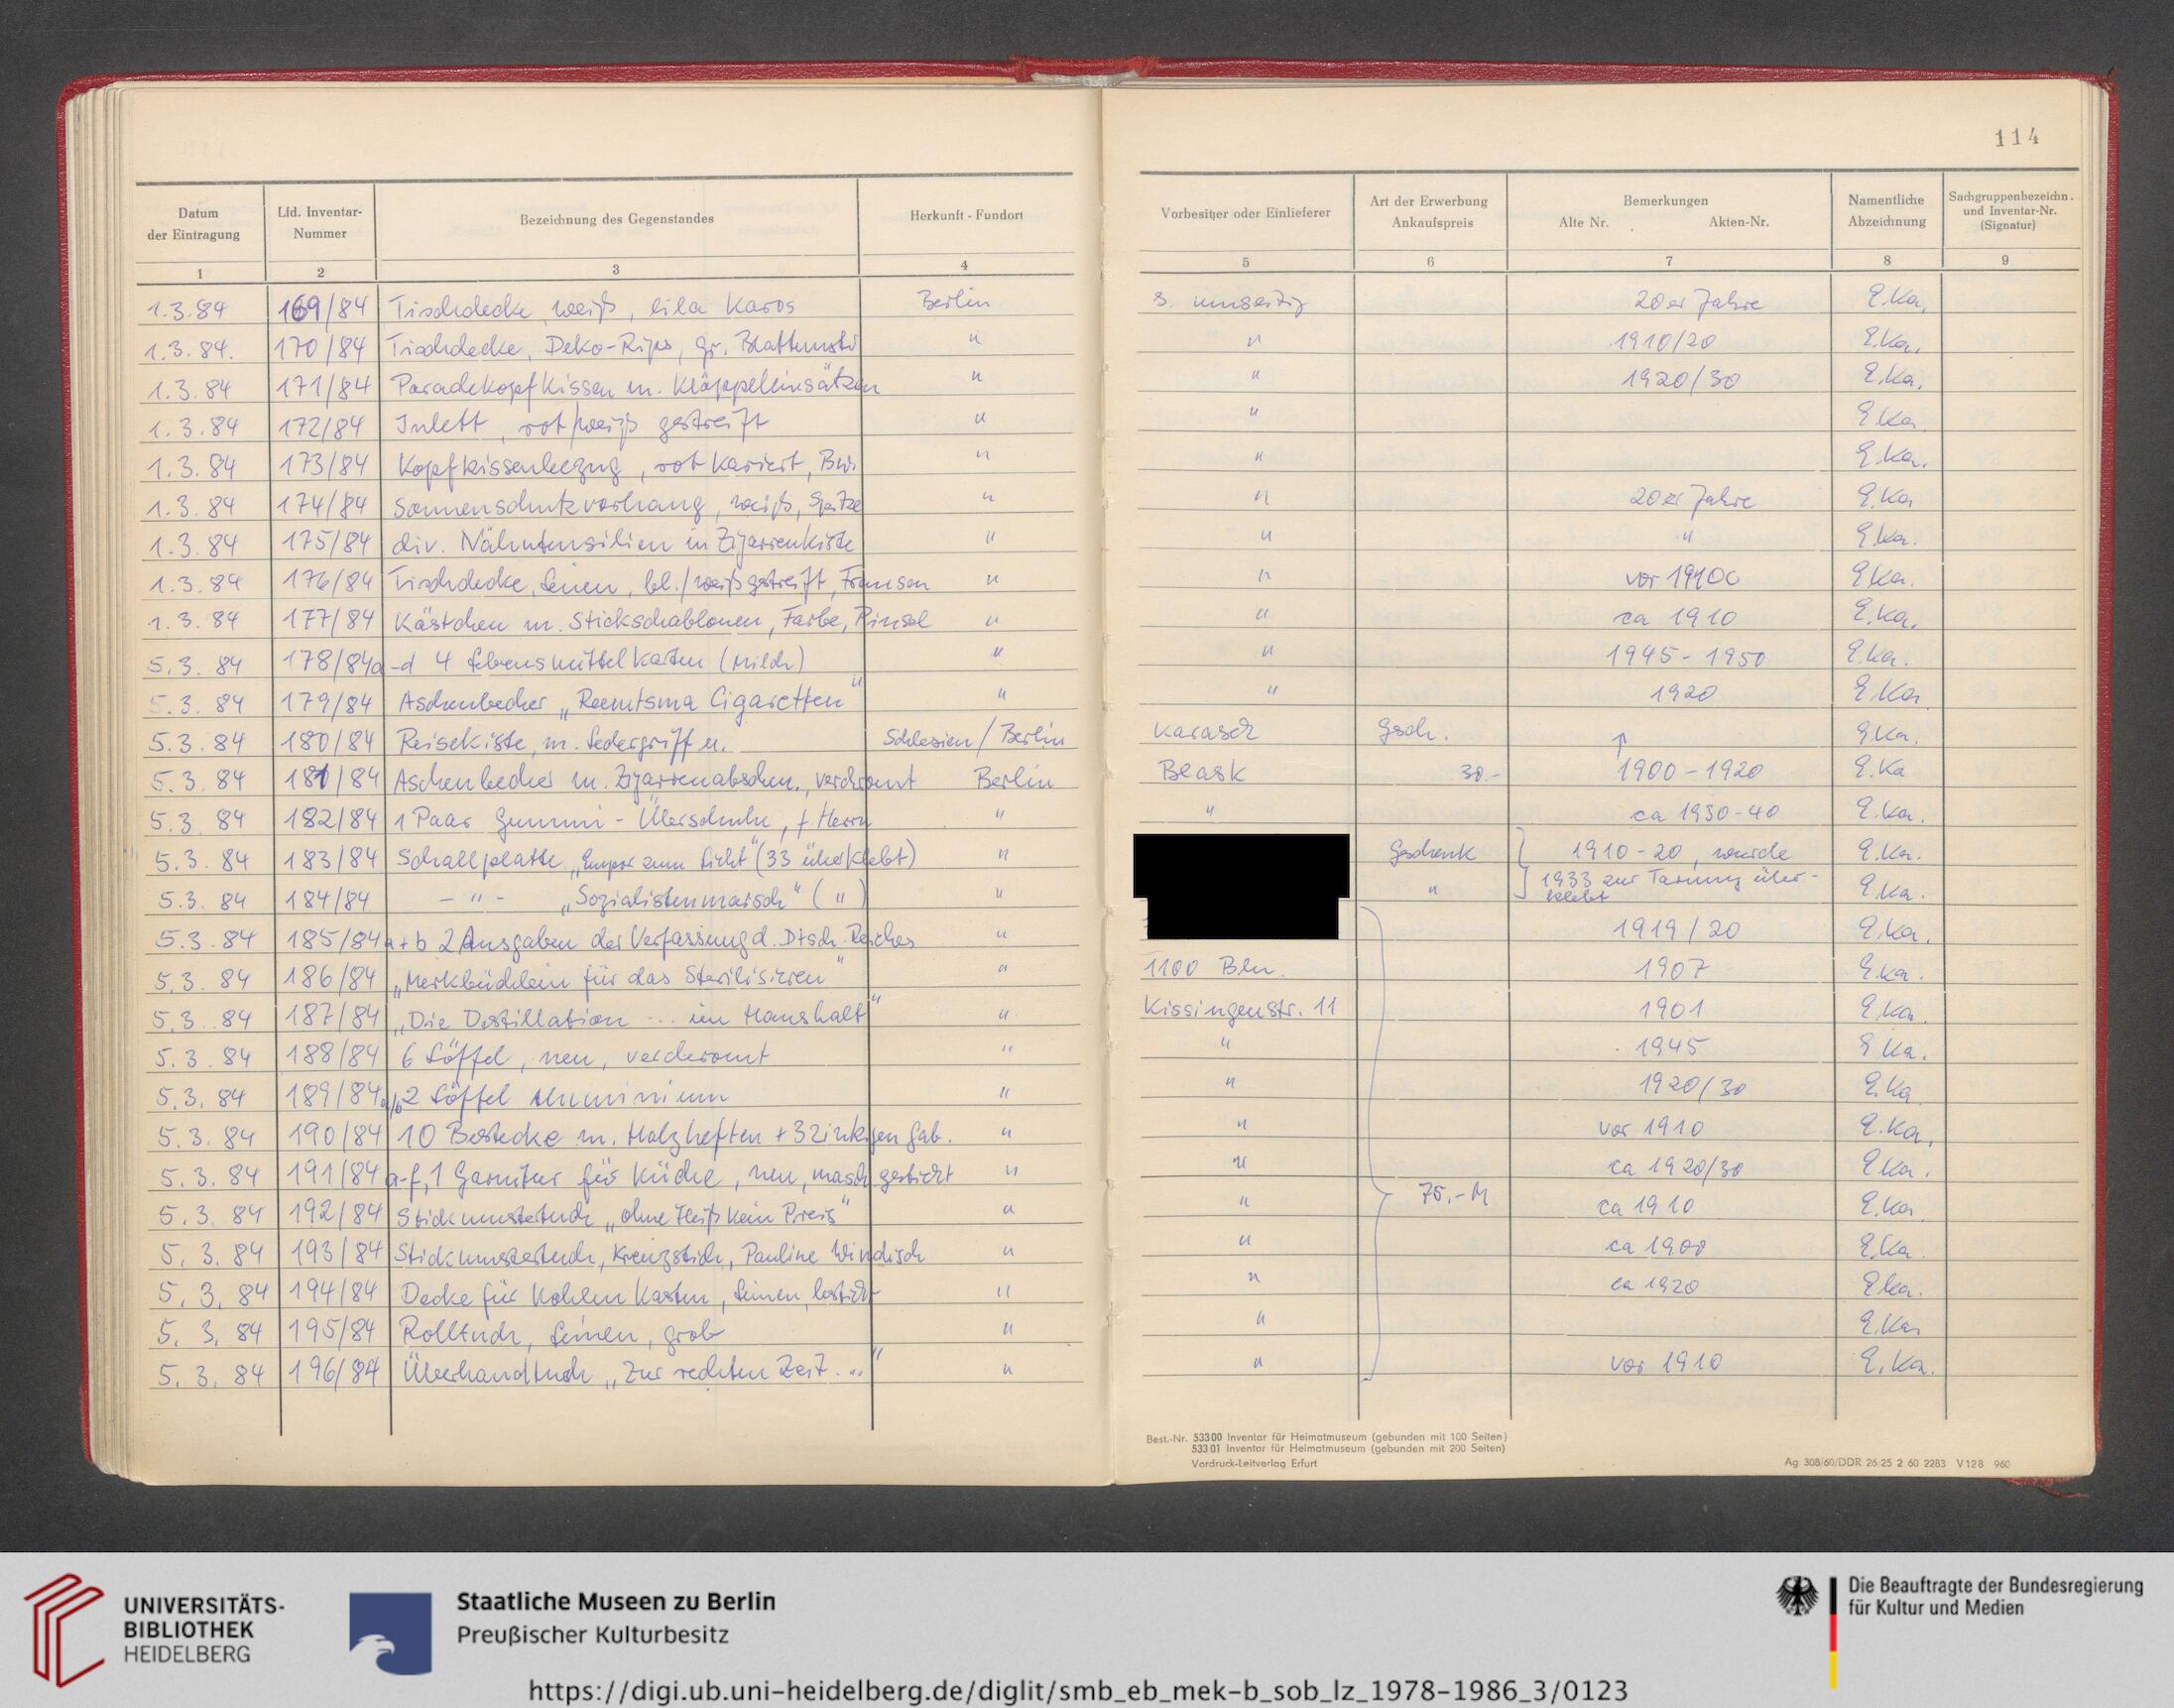 114
Datum der Eintragung | Lfd. Inventar-Nummer | Bezeichnung des Gegenstandes | Herkunft - Fundort | Vorbesitzer oder Einlieferer | Art der Erwerbung Ankaufspreis | Bemerkungen Alte Nr. Akten-Nr. | Namentliche Abzeichnung | Sachgruppenbezeichn. und Inventar-Nr. (Signatur)
1 | 2 | 3 | 4 | 5 | 6 | 7 | 8 | 9
1.3.84 | 169/84 | Tischdecke, weiß, lila Karos | Berlin | s. umseitig | 20er Jahre | E.Ka.
1.3.84. | 170/84 | Tischdecke, Deko-Rips, gr. | " | " | 1910/20 | E.Ka.
1.3.84 | 171/84 | Paradekopfkissen m. Klöppeleinsätzen | " | " | 1920/30 | E.Ka.
1.3.84 | 172/84 | Inlett, rot/weiß gestreift | " | " | E.Ka.
1.3.84 | 173/84 | Kopfkissenbezug, rot kariert, Bw. | " | " | E.Ka.
1.3.84 | 174/84 | Sonnenschutzvorhang, weiß, Spitze | " | " | 20er Jahre | E.Ka
1.3.84 | 175/84 | div. Nähutensilien in Zigarrenkiste | " | " | " | E.Ka.
1.3.84 | 176/84 | Tischdecke, Leinen, bl./weiß gestreift, Fransen | " | " | vor | E.Ka.
1.3.84 | 177/84 | Kästchen m. Stickschablonen, Farbe, Pinsel | " | " | ca 1910 | E.Ka.
5.3.84 | 178/84a-d | 4 Lebensmittelkarten (Milch) | " | " | 1945-1950 | E.Ka.
5.3.84 | 179/84 | Aschenbecher „Reemtsma Cigaretten" | " | " | 1920 | E.Ka.
5.3.84 | 180/84 | Reisekiste, m. Ledergriff u. | Schlesien/Berlin | Karasch | Gsch. | ↑ | E.Ka.
5.3.84 | 181/84 | Aschenbecher m. Zigarrenabschn., verchromt | Berlin | Blask | 30.- | 1900-1920 | E.Ka
5.3.84 | 182/84 | 1 Paar Gummi-Überschuhe, f. Herrn | " | " | ca 1930-40 | E.Ka.
5.3.84 | 183/84 | Schallplatte „Empor zum Licht" (33 überklebt) | " | Geschenk | 1910-20, wurde | E.Ka.
5.3.84 | 184/84 | - " - „Sozialistenmarsch" ( " ) | " | " | 1933 zur Tarnung überklebt | E.Ka.
5.3.84 | 185/84 a+b | 2 Ausgaben der Verfassung d. Dtsch. Reiches | " | 1919/20 | E.Ka.
5.3.84 | 186/84 | „Merkbüchlein für das Sterilisieren" | " | 1100 Bln. | 1907 | E.Ka.
5.3.84 | 187/84 | „Die Destillation ... im Haushalt" | " | Kissingenstr. 11 | 1901 | E.Ka.
5.3.84 | 188/84 | 6 Löffel, neu, verchromt | " | " | 1945 | E.Ka.
5.3.84 | 189/84 a/b | 2 Löffel Aluminium | " | " | 1920/30 | E.Ka
5.3.84 | 190/84 | 10 Bestecke m. Holzheften + 3zinkigen Gab. | " | " | vor 1910 | E.Ka.
5.3.84 | 191/84 a-f, | 1 Garnitur für Küche, neu, masch gestickt | " | " | ca 1920/30 | E.Ka.
5.3.84 | 192/84 | Stickmustertuch „ohne Fleiß kein Preis" | " | " | 75.-M | ca 1910 | E.Ka.
5.3.84 | 193/84 | Stickmustertuch, Kreuzstich, Pauline Windisch | " | " | ca 1900 | E.Ka.
5.3.84 | 194/84 | Decke für Kohlen Kasten, Leinen, bestickt | " | " | ca 1920 | E.Ka.
5.3.84 | 195/84 | Rolltuch, Leinen, grob | " | " | E.Ka.
5.3.84 | 196/84 | Überhandtuch „Zur rechten Zeit ..." | " | " | vor 1910 | E.Ka.
Best.-Nr. 53300 Inventar für Heimatmuseum (gebunden mit 100 Seiten)
53301 Inventar für Heimatmuseum (gebunden mit 200 Seiten)
Vordruck-Leitverlag Erfurt
Ag 308/60/DDR 26 25 2 60 2283 V 12 8 960
UNIVERSITÄTS-
BIBLIOTHEK
HEIDELBERG
Staatliche Museen zu Berlin
Preußischer Kulturbesitz
Die Beauftragte der Bundesregierung
für Kultur und Medien
https://digi.ub.uni-heidelberg.de/diglit/smb_eb_mek-b_sob_lz_1978-1986_3/0123